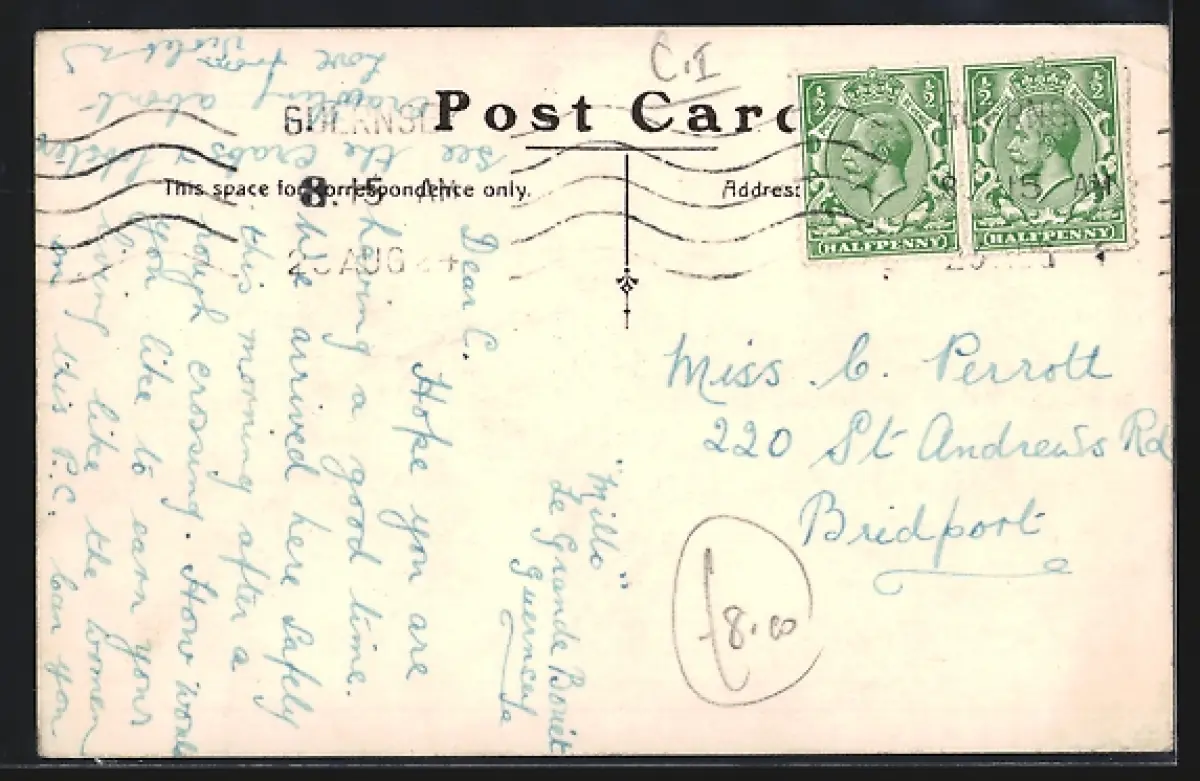 C.I
Post Card
GUERNSE
8.15 AM
AUG
This space for correspondence only.
Address
HALFPENNY
HALFPENNY
Miss C. Perrott
220 St Andrew's Rd
Bridport
£8.00
"Millo"
Le Grande Bouet
Guernsey
Dear C.
Hope you are
having a good time.
We arrived here safely
this morning after a
rough crossing. How would
you like to earn your
living like the women
on this P.C. Can you
see the crabs &
crawling about
Love from
Violet